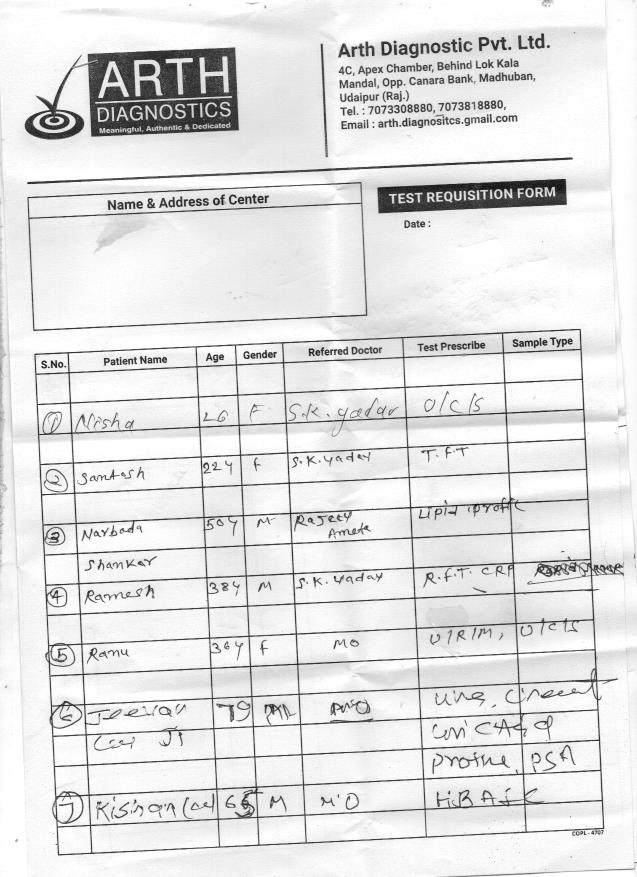 ARTH
DIAGNOSTICS
Meaningful, Authentic & Dedicated
Arth Diagnostic Pvt. Ltd.
4C, Apex Chamber, Behind Lok Kala
Mandal, Opp. Canara Bank, Madhuban,
Udaipur (Raj.)
Tel. : 7073308880, 7073818880,
Email : arth.diagnositcs.gmail.com
Name & Address of Center
TEST REQUISITION FORM
Date :
S.No. Patient Name Age Gender Referred Doctor Test Prescribe Sample Type
1 Nisha F S.K. yadav U/C/S
2 Santosh 22y F S.K. yadav T.F.T
3 Narbada 50y M Rajeev Lipid profile
Ameta
Shankar
4 Ramesh 38y M S.K. yadav R.F.T. CRP
5 Ranu 36y F MO U/R/M, U/C/S
6 Jeevan 79
Lal Ji
PSA
7 Kishan Lal 65 M MO HBA1C
COPL - 4707